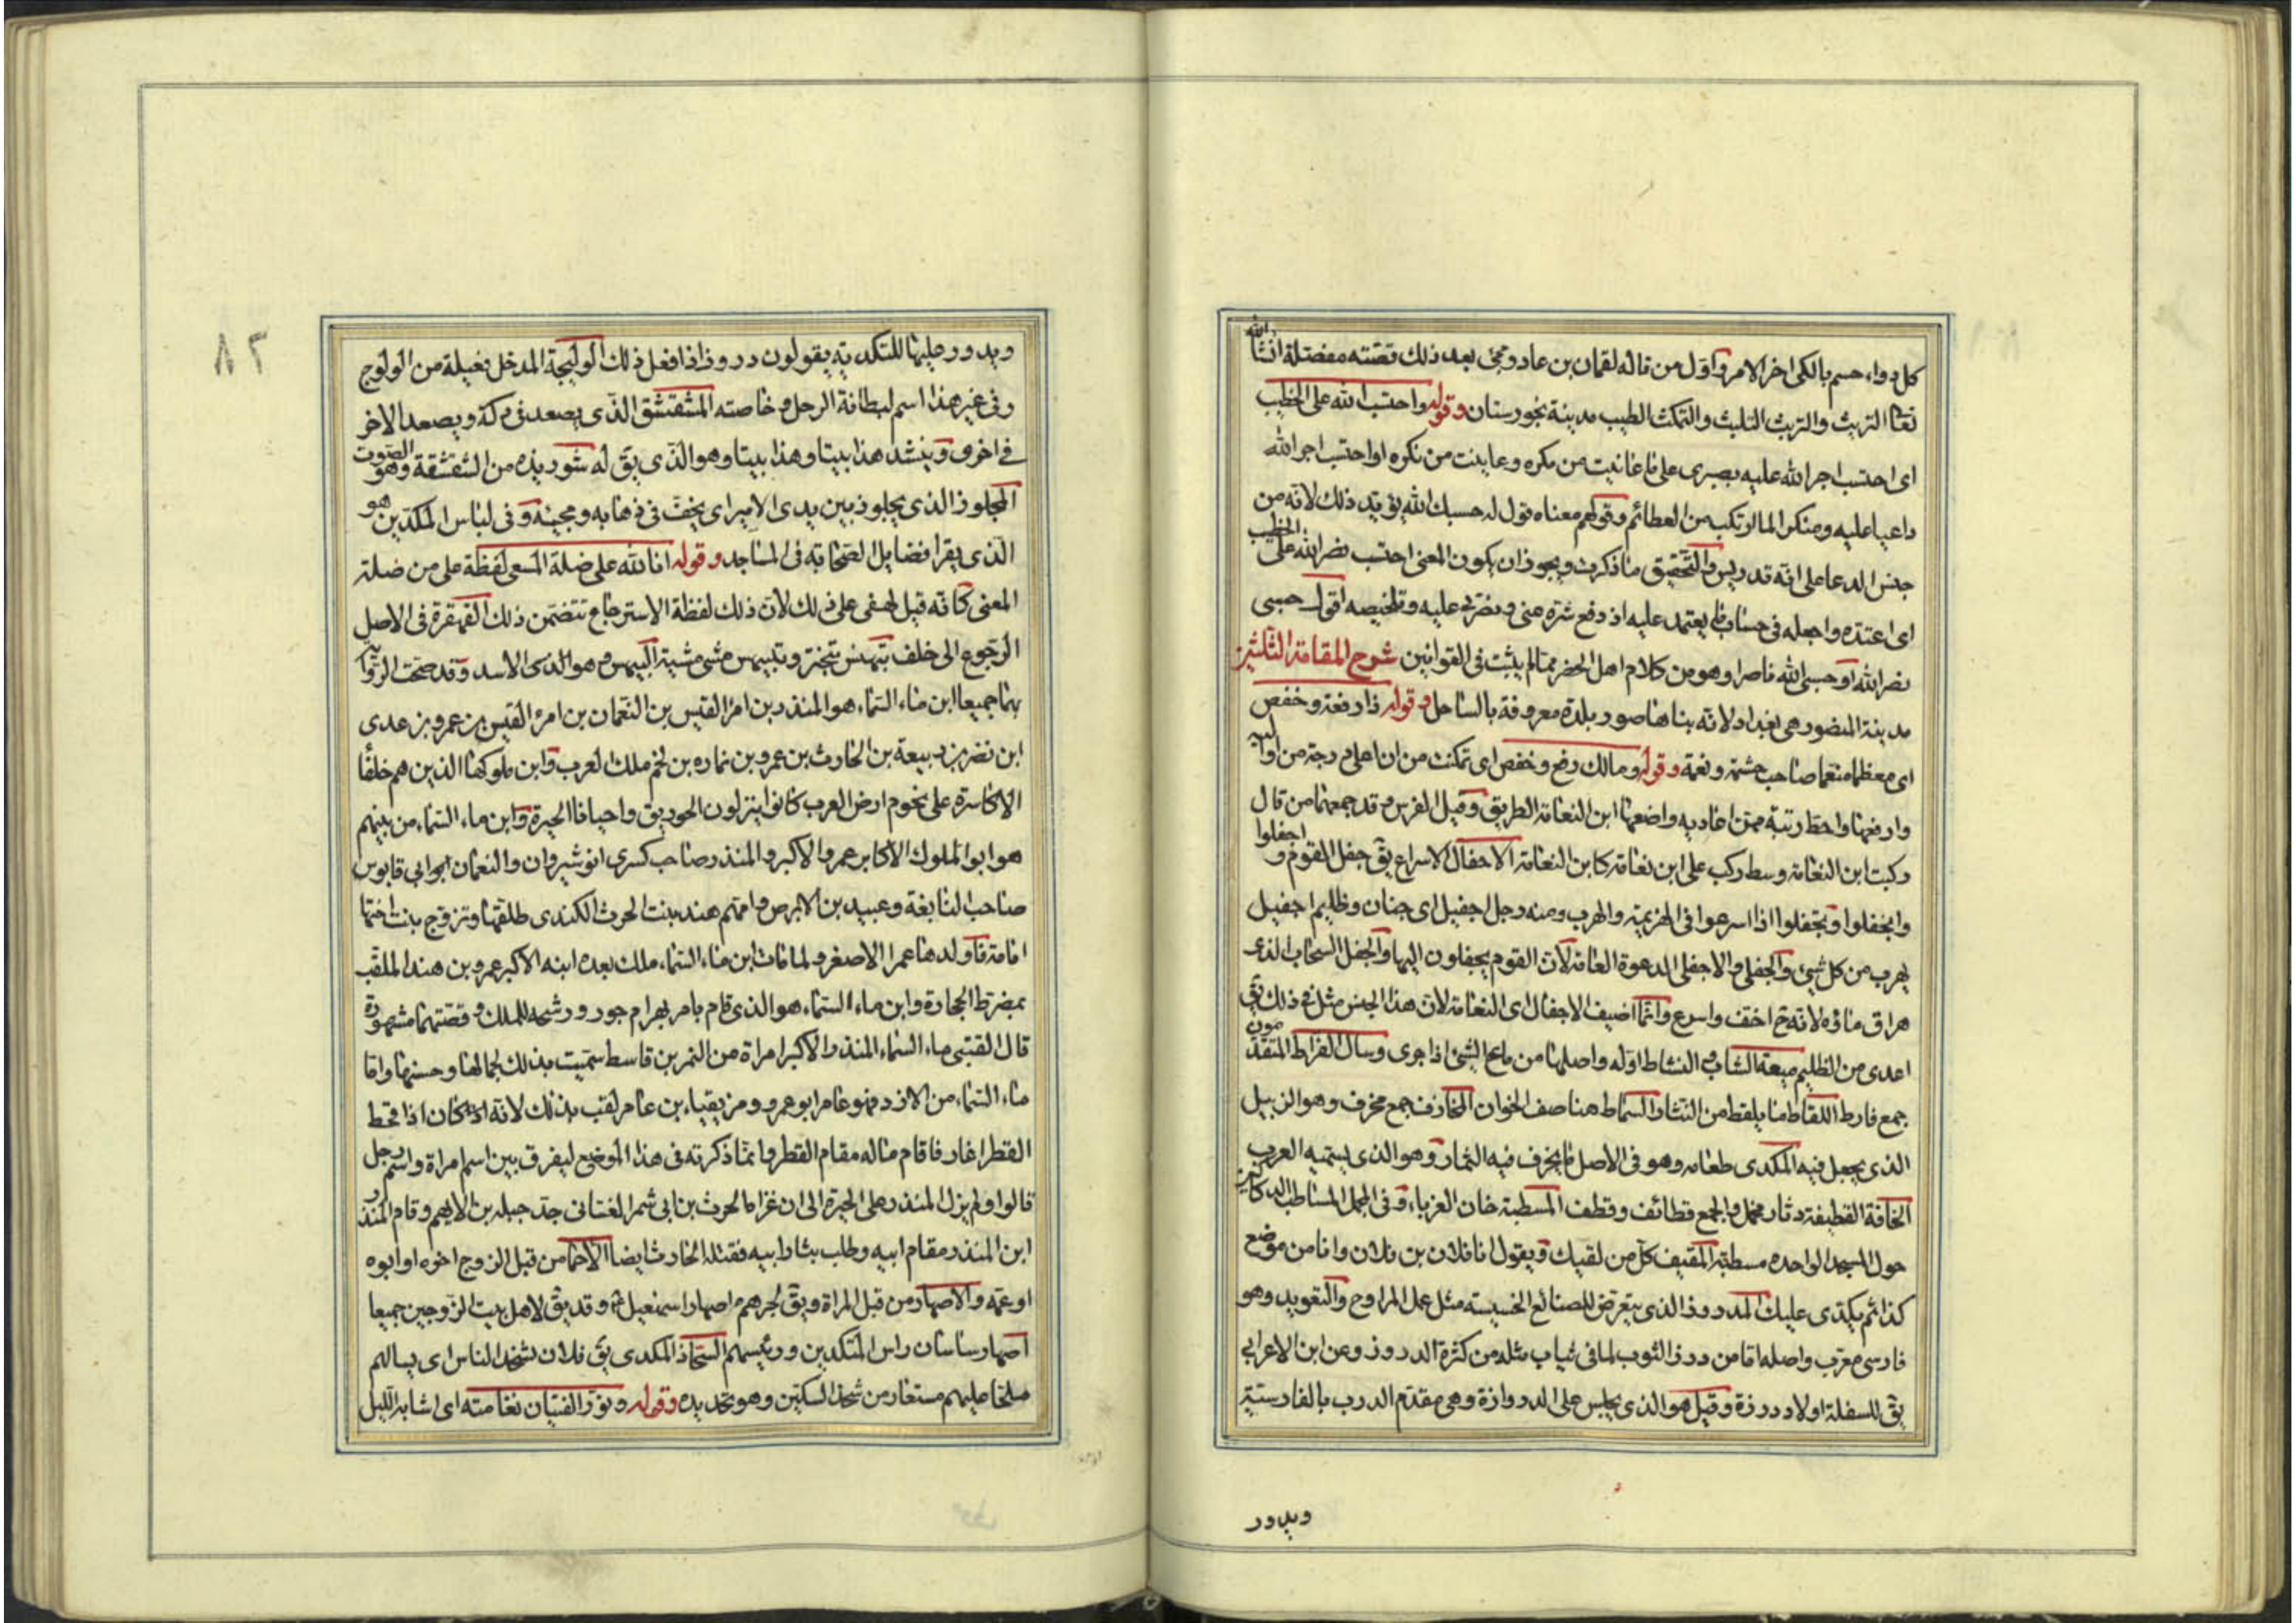 كل دواء حسم بالكى اخر الامر واول من قاله لقمان بن عاد وتجئ بعد ذلك قصته مفصلة انشا الله
تعا التريث والتربث التلبث والتمكث الطيب مدينة بخورستان وقوله واحتسب الله على الخطيب
اى احتسب اجر الله عليه بصبرى على ما عانيت من مكره وعاينت من نكره او احتسب اجر الله
داعيا عليه ومنكرا لما ارتكب من العظائم وقولهم معناه قول له حسبك الله يؤيد ذلك لانه من
جنس الدعا على انه قد ريس والتحقيق ما ذكرت ويجوز ان يكون المعنى احتسب نصر الله على الخطيب
اى اعتده واجعله فى حساب ما يعتمد عليه اذ دفع شره عنى ونصرنى عليه وتلخيصه اقول حسبى
نصر الله او حسبى الله ناصرا وهو من كلام اهل الحضر مما لم يثبت فى القوانين شرح المقامة الثلثين
مدينة المنصور هى بغداد لانه بناها صور بلدة معروفة بالساحل وقوله ذا رفعة وخفض
اى معظما منعما صاحب حشمة ونعمة وقوله ومالك رفع وخفض اى تمكنت من ان اعلى درجة من اواليه
وارفعها واحط رتبة ممن اعاديه واضعها ابن النعامة الطريق وقيل الفرس وقد جمعهما من قال
ركبت ابن النعامة وسط ركب على ابن نعامة كابن النعامة الاجفال الاسراع يق جفل القوم واجفلوا
وانجفلوا وتجفلوا اذا اسرعوا فى الهزيمة والهرب ومنه رجل اجفيل اى جبان وظليم اجفيل
يهرب من كل شيئ والجفلى والاجفلى الدعوة العامة لان القوم يجفلون اليها والجفل السحاب الذى
هراق ماؤه لانه ح اخف واسرع وانما اضيف الاجفال الى النعامة لان هذا الجنس مثل فى ذلك يق
اعدى من الظليم ميعة الشباب والنشاط اوله واصلها من ماع الشيئ اذا جرى وسال الفراط المتقدمون
جمع فارط اللقاط ما يلقط من النثار السماط هنا صف الخوان المخارف جمع مخرف وهو الزبيل
الذى يجعل فيه المكدى طعامه وهو فى الاصل ما يخرف فيه الثمار وهو الذى يسميه العرب
الخافة القطيفة دثار مخمل والجمع قطائف وقطف المسطبة خان الغرباء وفى المجمل المساطب الدكاكين
حول المسجد الواحدة مسطبة المقيف كل من لقيك ويقول انا فلان بن فلان وانا من موضع
كذا ثم يكدى عليك المدروز الذى يتعرض للصنائع الخسيسة مثل عمل المراوح والتعويد وهو
فارسى معرب واصله اما من درز الثوب لما فى ثياب مثله من كثرة الدروز وعن ابن الاعرابى
يق للسفلة اولاد درزة وقيل هو الذى يجلس على الدروازة وهى مقدم الدرب بالفارسية
ويدور
ويدور عليها للتكدية يقولون دروز اذا فعل ذلك الوليجة المدخل فعيلة من الولوج
وفى غير هذا اسم لبطانة الرجل وخاصته المشقشق الذى يصعد فى دكة ويصعد الاخر
فى اخرى وينشد هذا بيتا وهذا بيتا وهو الذى يق له شوريده من الشقشقة وهو الصوت
المجلوز الذى يجلوز بين يدى الامير اى يخف فى ذهابه ومجيئه وفى لباس المكدين هو
الذى يقرا فضايل الصحابة فى المساجد وقوله انا لله على ضلة المسعى لفظة على من ضلة
المعنى كانه قيل لهفى على ذلك لان ذلك لفظة الاسترجاع تتضمن ذلك القهقرة فى الاصل
الرجوع الى خلف يتبهنس يتبختر وتبيهس مشى مشية البيهس وهو الذى الاسد وقد صحت الرواية
بهما جميعا ابن ماء السماء هو المنذر بن امرء القيس بن النعمان بن امرء القيس بن عمرو بن عدى
ابن نصر بن ربيعة بن الحارث بن عمرو بن نماره بن لخم ملك العرب وابن ملوكها الذين هم خلفا
الاكاسرة على تخوم ارض العرب كانوا ينزلون الحوريق واحيانا الحيرة وابن ماء السماء من بينهم
هو ابو الملوك الاكابر عمرو الاكبر والمنذر صاحب كسرى انوشيروان والنعمان ابو ابى قابوس
صاحب النابغة وعبيد بن الابرص وامهم هند بنت الحرث الكندى طلقها وتزوج بنت اختها
امامة فاولدها عمرا الاصغر ولما مات ابن ماء السماء ملك بعده ابنه الاكبر عمرو بن هند الملقب
بمضرط الحجارة وابن ماء السماء هو الذى قام بامر بهرام جور ورشحه للملك وقصتهما مشهورة
قال القتبى ماء السماء المنذر الاكبر امراة من النمر بن قاسط سميت بذلك لجمالها وحسنها واما
ماء السماء من الازد فهو عامر ابو عمرو ومزيقياء بن عامر لقب بذلك لانه كان اذا قحط
القطر اغار فاقام ماله مقام القطر وانما ذكرته فى هذا الموضع ليفرق بين اسم امراة واسم رجل
قالوا ولم يزل المنذر على الحيرة الى ان غزا الحرث بن ابى شمر الغسانى جد جبله بن الايهم وقام المنذر
ابن المنذر مقام ابيه وطلب بثار ابيه فقتله الحارث ايضا الاحما من قبل الزوج اخوه او ابوه
او عمه والاصهار من قبل المراة ويق لجرهم اصهار اسمعيل وقد يق لاهل بيت الزوجين جميعا
اصهار ساسان راس المتكدين ورئيسهم الشحاذ المكدى يق فلان يشحذ الناس اى يسالهم
ملحا عليهم مستعار من شحذ السكين وهو تحديده وقوله ونوّر الفتيان نغامته اى اشابه الليل
٨٢